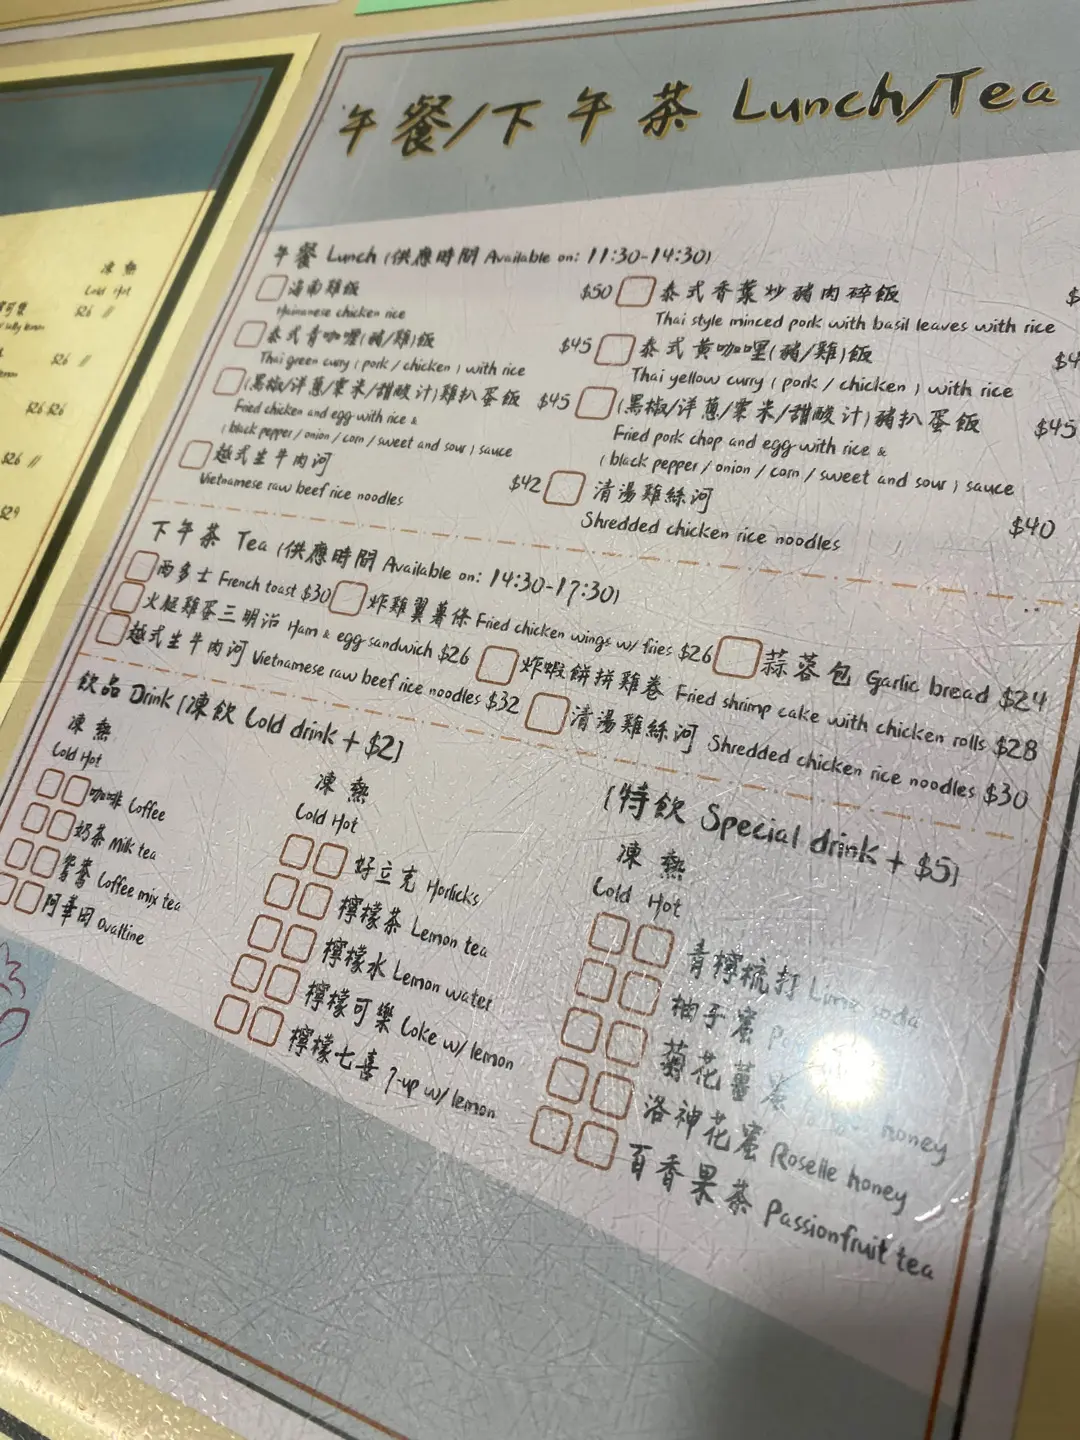 午餐/下午茶 Lunch/Tea
凍 熱
Cold Hot
$26 //
$26 //
$26 $26
$26 //
$29
午餐 Lunch (供應時間 Available on: 11:30-14:30)
海南雞飯 $50
Hainanese chicken rice
泰式香葉炒豬肉碎飯
Thai style minced pork with basil leaves with rice
泰式青咖喱(豬/雞)飯 $45
Thai green curry (pork / chicken) with rice
泰式黃咖喱(豬/雞)飯
Thai yellow curry (pork / chicken) with rice
(黑椒/洋蔥/粟米/甜酸汁)雞扒蛋飯 $45
Fried chicken and egg with rice &
(black pepper / onion / corn / sweet and sour) sauce
(黑椒/洋蔥/粟米/甜酸汁)豬扒蛋飯 $45
Fried pork chop and egg with rice &
(black pepper / onion / corn / sweet and sour) sauce
越式生牛肉河 $42
Vietnamese raw beef rice noodles
清湯雞絲河 $40
Shredded chicken rice noodles
下午茶 Tea (供應時間 Available on: 14:30-17:30)
西多士 French toast $30 炸雞翼薯條 Fried chicken wings w/ fries $26 蒜蓉包 Garlic bread $24
火腿雞蛋三明治 Ham & egg sandwich $26 炸蝦餅拼雞卷 Fried shrimp cake with chicken rolls $28
越式生牛肉河 Vietnamese raw beef rice noodles $32 清湯雞絲河 Shredded chicken rice noodles $30
飲品 Drink (凍飲 Cold drink + $2)
凍 熱
Cold Hot
咖啡 Coffee
奶茶 Milk tea
鴛鴦 Coffee mix tea
阿華田 Ovaltine
凍 熱
Cold Hot
好立克 Horlicks
檸檬茶 Lemon tea
檸檬水 Lemon water
檸檬可樂 Coke w/ lemon
檸檬七喜 7-up w/ lemon
(特飲 Special drink + $5)
凍 熱
Cold Hot
青檸梳打 Lime soda
柚子蜜
菊花薑蜜 honey
洛神花蜜 Roselle honey
百香果茶 Passionfruit tea